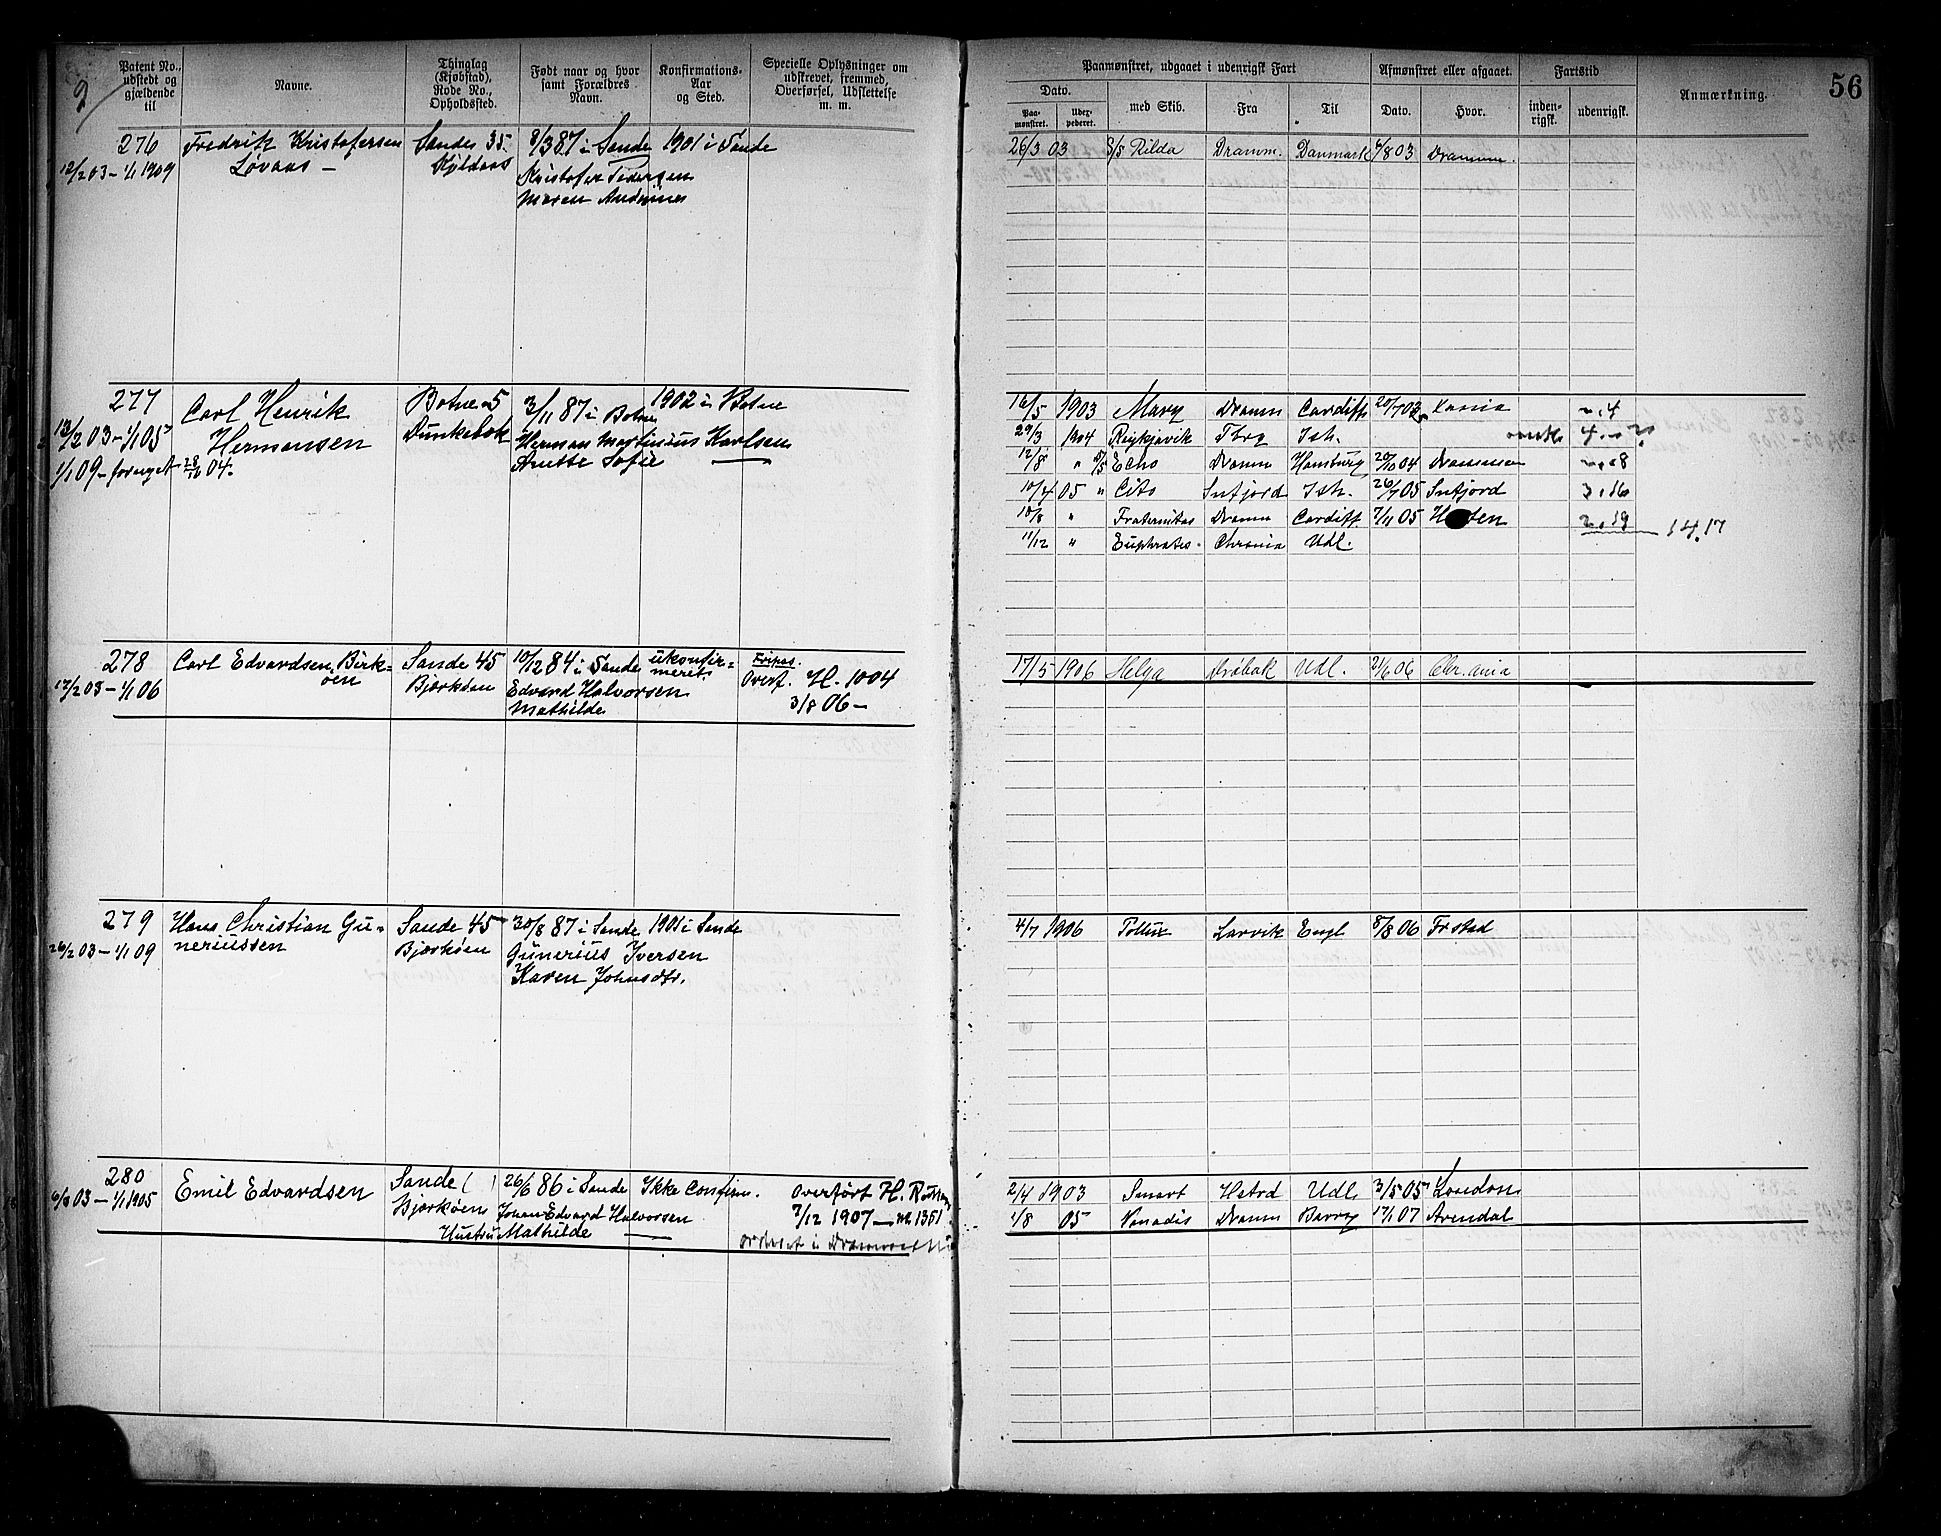 2
56
Patent No., udstedt og gjældende til
Navne.
Thinglag (Kjøbstad), Rode No., Opholdssted.
Født naar og hvor samt Forældres Navn.
Konfirmations-Aar og Sted.
Specielle Oplysninger om udskrevet, fremmed, Overførsel, Udslettelse m. m.
Paamønstret, udgaaet i udenrigsk Fart
Afmønstret eller afgaaet.
Fartstid
Anmærkning.
Dato.
Paa-mønstret.
Uder-pederet.
med Skib.
Fra
Til
Dato.
Hvor.
inden-rigsk.
udenrigsk.
276 Fredrik Kristofersen Sandes 35. 8/3 87 i Sande 1901 i Sande
12/2 03 - 1/1 1909 Løvaas -
Kristofer Pedersen
Maren Andrine
26/3 03 S/S Rilda Dramm. Danmark 4/8 03 Dramm.
277 Carl Henrik Botne 5 3/11 87 i Botne 1902 i Botne
13/2 03 - 1/1 05 Hermansen Herman Martinius Karlsen
1/1 09 - fornyet 28/10 04. Anette Sofie
16/5 1903 Mary Dramm Cardiff 20/7 03 Xania
29/3 1904 Reykjavik Tbrg Ish.
12/8 " Echo Dramm Hamburg 20/10 04 Drammen
10/4 05 " Cito Snfjord Ish. 26/7 05 Snfjord 3.16
10/8 " Fraternitas Dramm Cardiff 7/11 05 2.19 14.17
11/12 " Euphrates. Chrania Udl.
278 Carl Edvardsen Birk= Sande 45 10/12 84 i Sande ukonfir= Fripas.
17/2 03 - 1/1 06 øen Bjerkøen Edvard Halvorsen merit Overf. H. 1004
Mathilde 3/8 06 -
17/5 1906 Helga Drøbak Udl. 21/6 06 Chr.ania
279 Hans Christian Gu= Sande 45 30/8 87 i Sande 1901 i Sande
26/2 03 - 1/1 09 neriussen Bjerkøen Gunerius Iversen
Karen Johnsdtr.
4/7 1906 Pollux Larvik Engl 8/8 06 Frstad
280 Emil Edvardsen Sande ( ) 26/6 86 i Sande Ikke Confirm. Overført H.
03 - 1/1 1905 Bjerkøen Johan Edvard Halvorsen 7/12 1907 - No 1351
Hustru Mathilde
i Drammen
2/4 1903 Smart Hstrd Udl 3/5 05 London
1/8 05 Vanadis Dramm Barry 17/1 07 Arendal